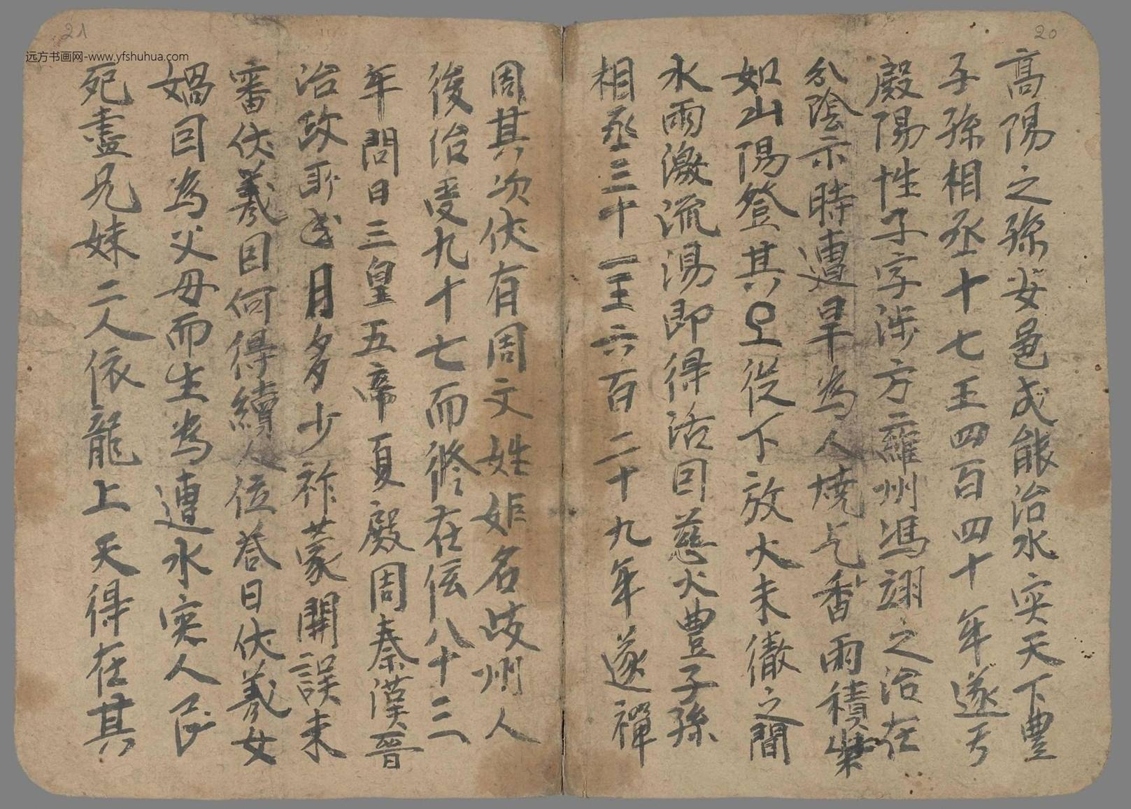 20
高陽之孫女邑成能治水突天下豊
子孫相丞十七王四百四十年遂于
殿陽性子字涉方雍州馮翊之治在
尒陰示時遭旱為人燒乞香雨積柴
如山陽登其㠯從下放火未徹之間
水雨激流湯即得活回慈火豊子孫
相丞三十一王六百二十九年遂禪
21
远方书画网-www.yfshuhua.com
周其次伏有周文姓姬名歧州人
後治憂九十七而終在位八十三
年問曰三皇五帝夏殿周秦漢晉
治政取成月多少祚蒙開誤未
審伏羲因何得續人位荅曰伏羲女
媧因為父母而生為遭水突人民
死盡兄妹二人依龍上天得在其